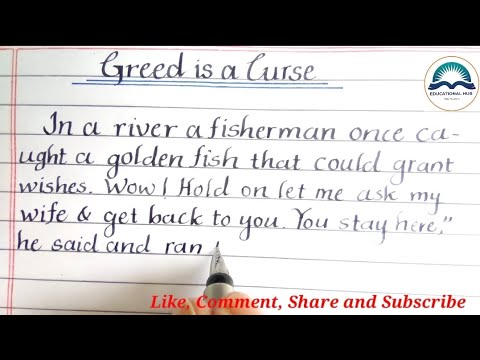 Greed is a Curse
EDUCATIONAL HUB
In a river a fisherman once ca-
ught a golden fish that could grant
wishes. Wow! Hold on let me ask my
wife & get back to you. You stay here,"
he said and ran
Like, Comment, Share and Subscribe